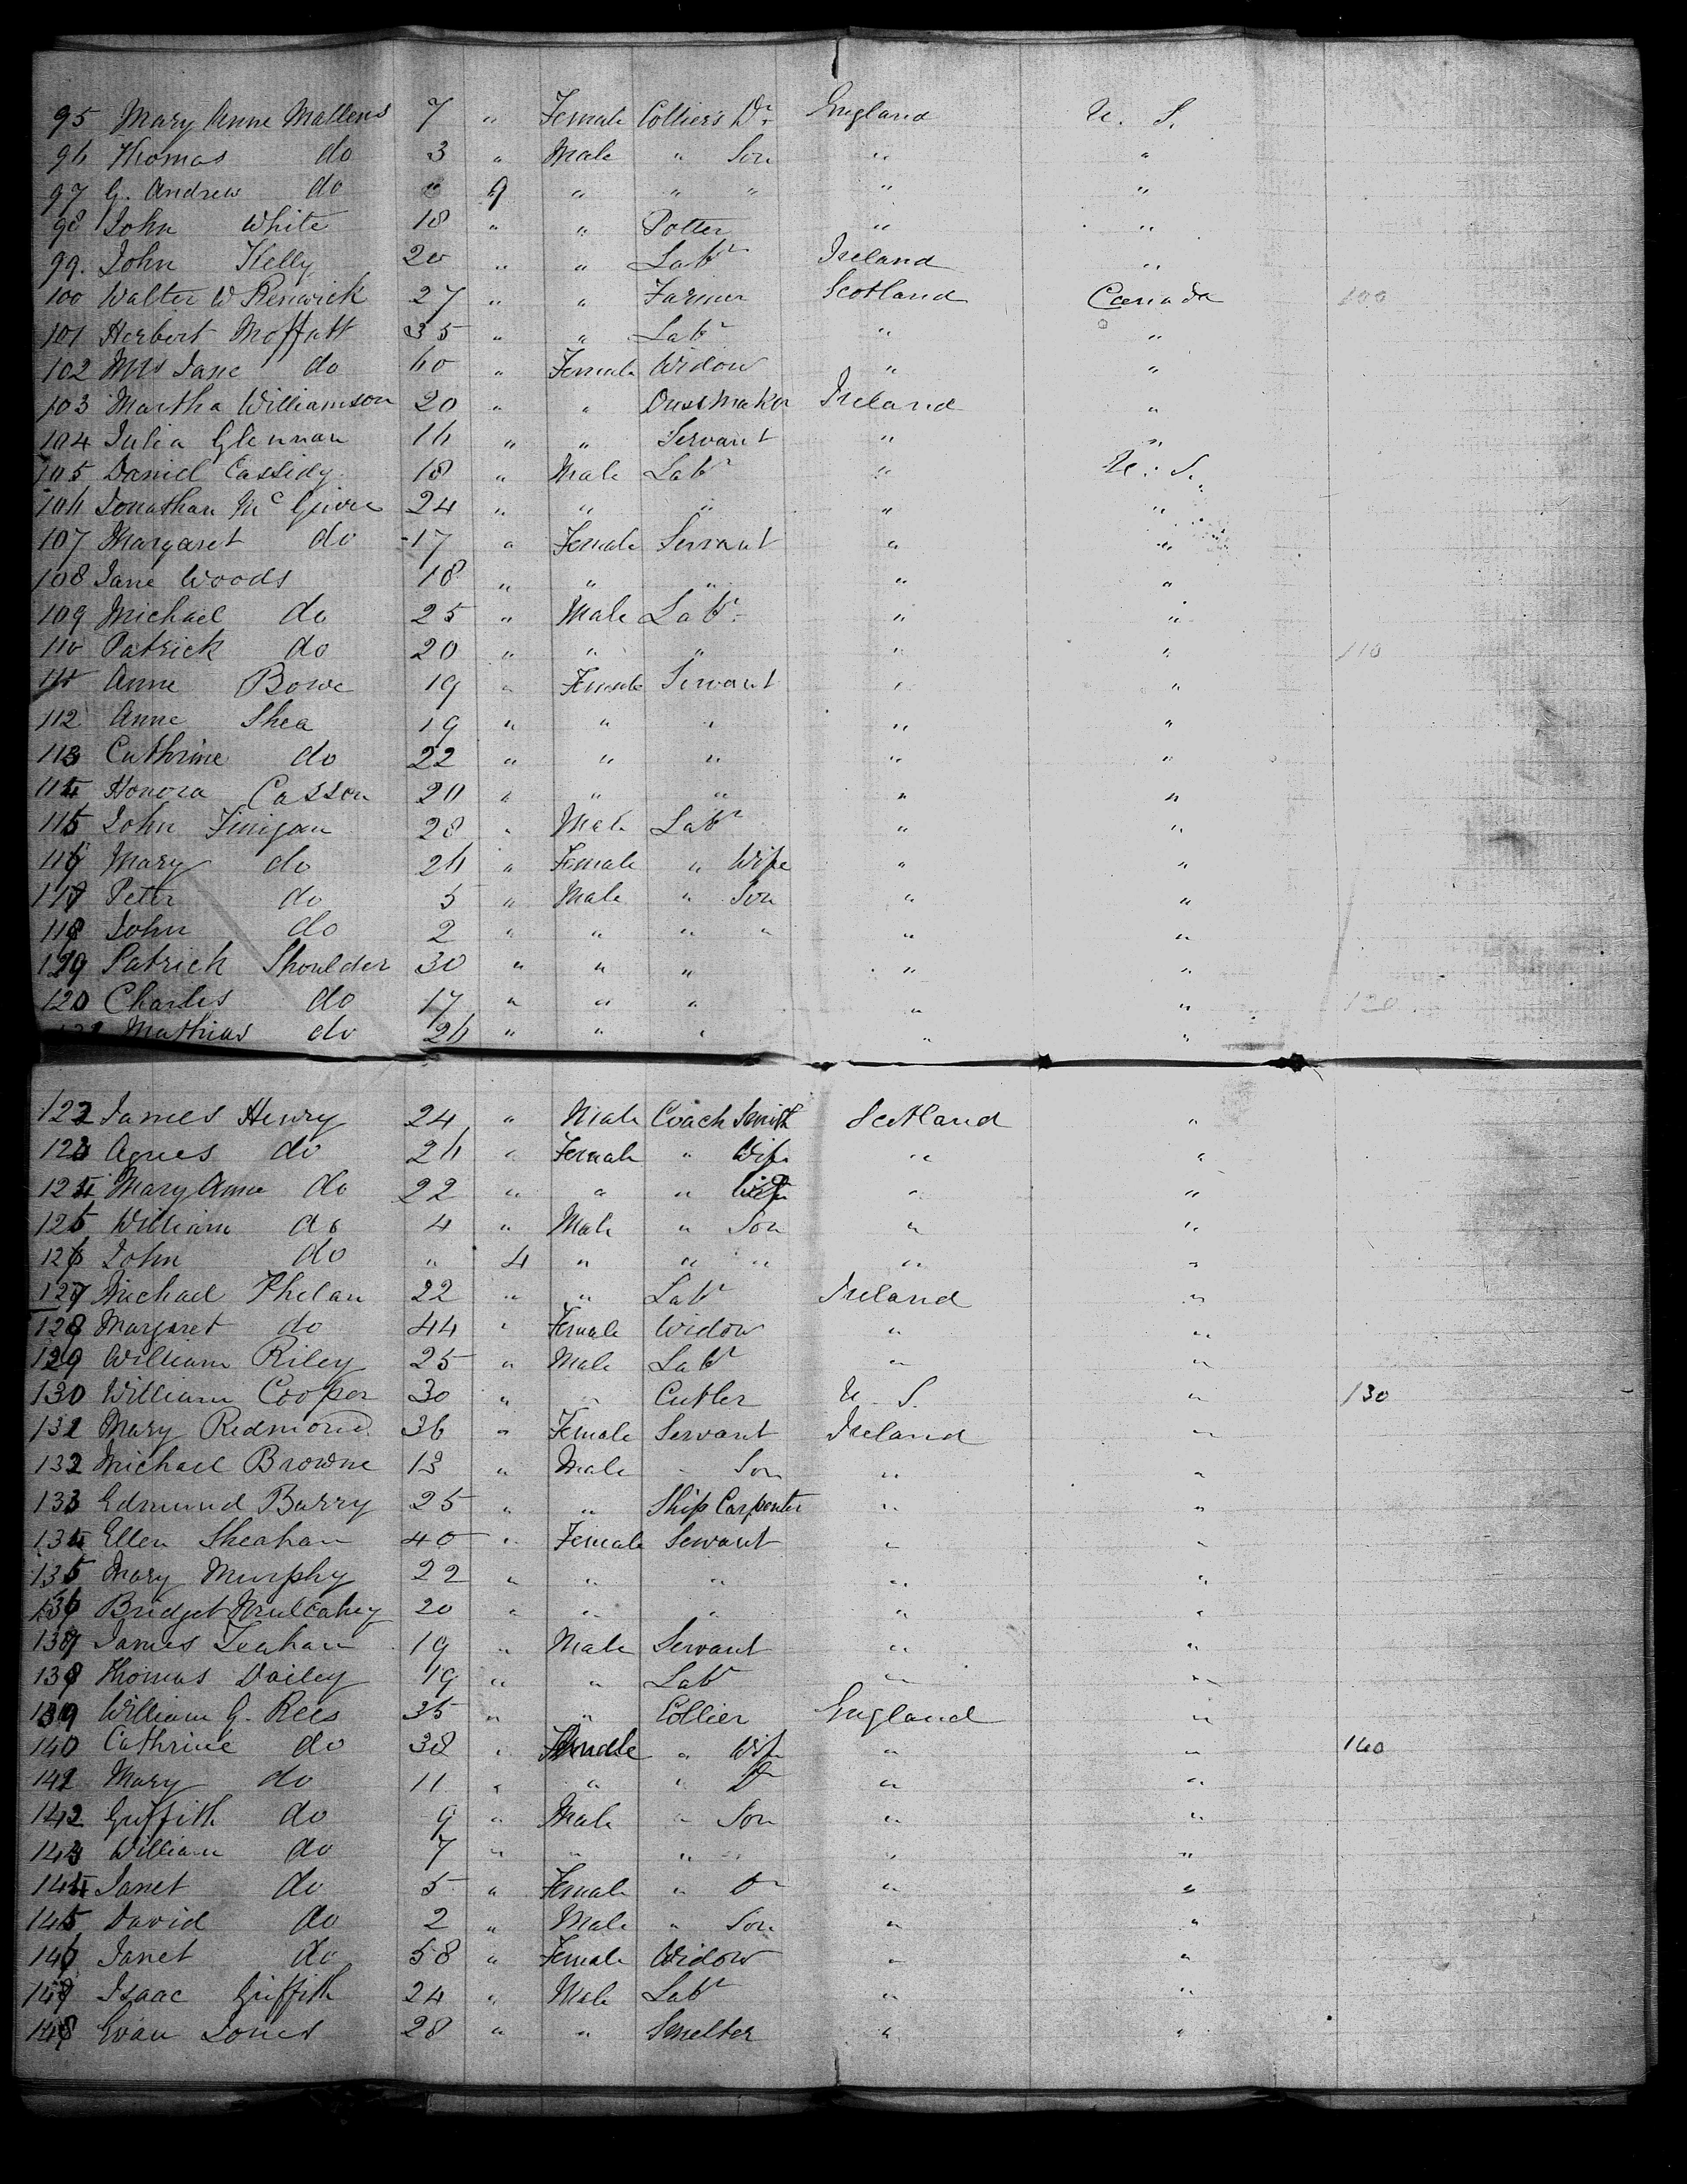 95 Mary Anne Mallens 7 " Female Collier's Dr England U. S.
96 Thomas do 3 " Male " Son " "
97 G. Andrew do " 9 " " " " "
98 John White 18 " " Potter " "
99. John Kelly 20 " " Labr Ireland "
100 Walter W Renwick 27 " " Farmer Scotland Canada 100
101 Herbert Moffatt 35 " " Labr " "
102 Mrs Jane do 60 " Female Widow " "
103 Martha Williamson 20 " " Dressmaker Ireland "
104 Julia Glennan 16 " " Servant " "
105 Daniel Cassidy 18 " Male Labr " U. S.
106 Jonathan McGuire 24 " " " " "
107 Margaret do 17 " Female Servant " "
108 Jane Woods 18 " " " " "
109 Michael do 25 " Male Labr " "
110 Patrick do 20 " " " " " 110
111 Anne Bowe 19 " Female Servant " "
112 Anne Shea 19 " " " " "
113 Cathrine do 22 " " " " "
114 Honora Casson 20 " " " " "
115 John Finigan 28 " Male Labr " "
116 Mary do 26 " Female " Wife " "
117 Peter do 5 " Male " Son " "
118 John do 2 " " " " " "
119 Patrick Shoulder 30 " " " " "
120 Charles do 17 " " " " " 120
121 Mathias do 26 " " " " "
122 James Henry 24 " Male Coach Smith Scotland "
123 Agnes do 26 " Female " Wife " "
124 Mary Anne do 22 " " " Wife " "
125 William do 4 " Male " Son " "
126 John do " 4 " " " " "
127 Michael Phelan 22 " " Labr Ireland "
128 Margaret do 44 " Female Widow " "
129 William Riley 25 " Male Labr " "
130 William Cooper 30 " " Cutler U. S. " 130
131 Mary Redmond 36 " Female Servant Ireland "
132 Michael Browne 13 " Male " Son " "
133 Edmund Barry 25 " " Ship Carpenter " "
134 Ellen Sheahan 40 " Female Servant " "
135 Mary Murphy 22 " " " " "
136 Bridget Mulcahey 20 " " " " "
137 James Leahan 19 " Male Servant " "
138 Thomas Dailey 19 " " Labr " "
139 William G. Rees 35 " " Collier England "
140 Cathrine do 38 " Female " Wife " " 140
141 Mary do 11 " " " Dr " "
142 Griffith do 9 " Male " Son " "
143 William do 7 " " " " " "
144 Janet do 5 " Female " Dr " "
145 David do 2 " Male " Son " "
146 Janet do 58 " Female Widow " "
147 Isaac Griffith 24 " Male Labr " "
148 Evan Jones 28 " " Smelter " "